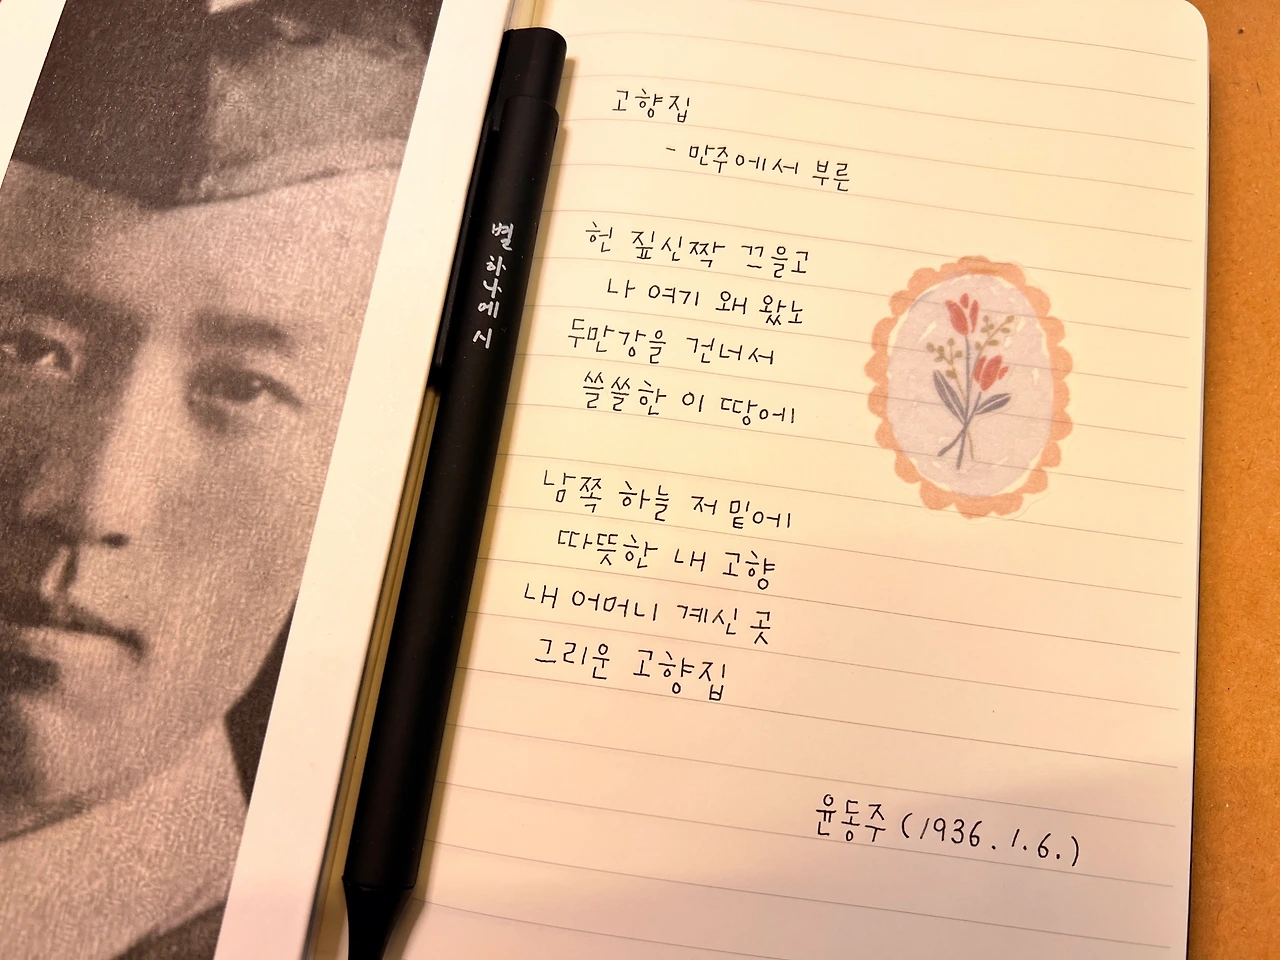 별 하나에 시
고향집
- 만주에서 부른
헌 짚신짝 끄을고
나 여기 왜 왔노
두만강을 건너서
쓸쓸한 이 땅에
남쪽 하늘 저 밑에
따뜻한 내 고향
내 어머니 계신 곳
그리운 고향집
윤동주 (1936.1.6.)